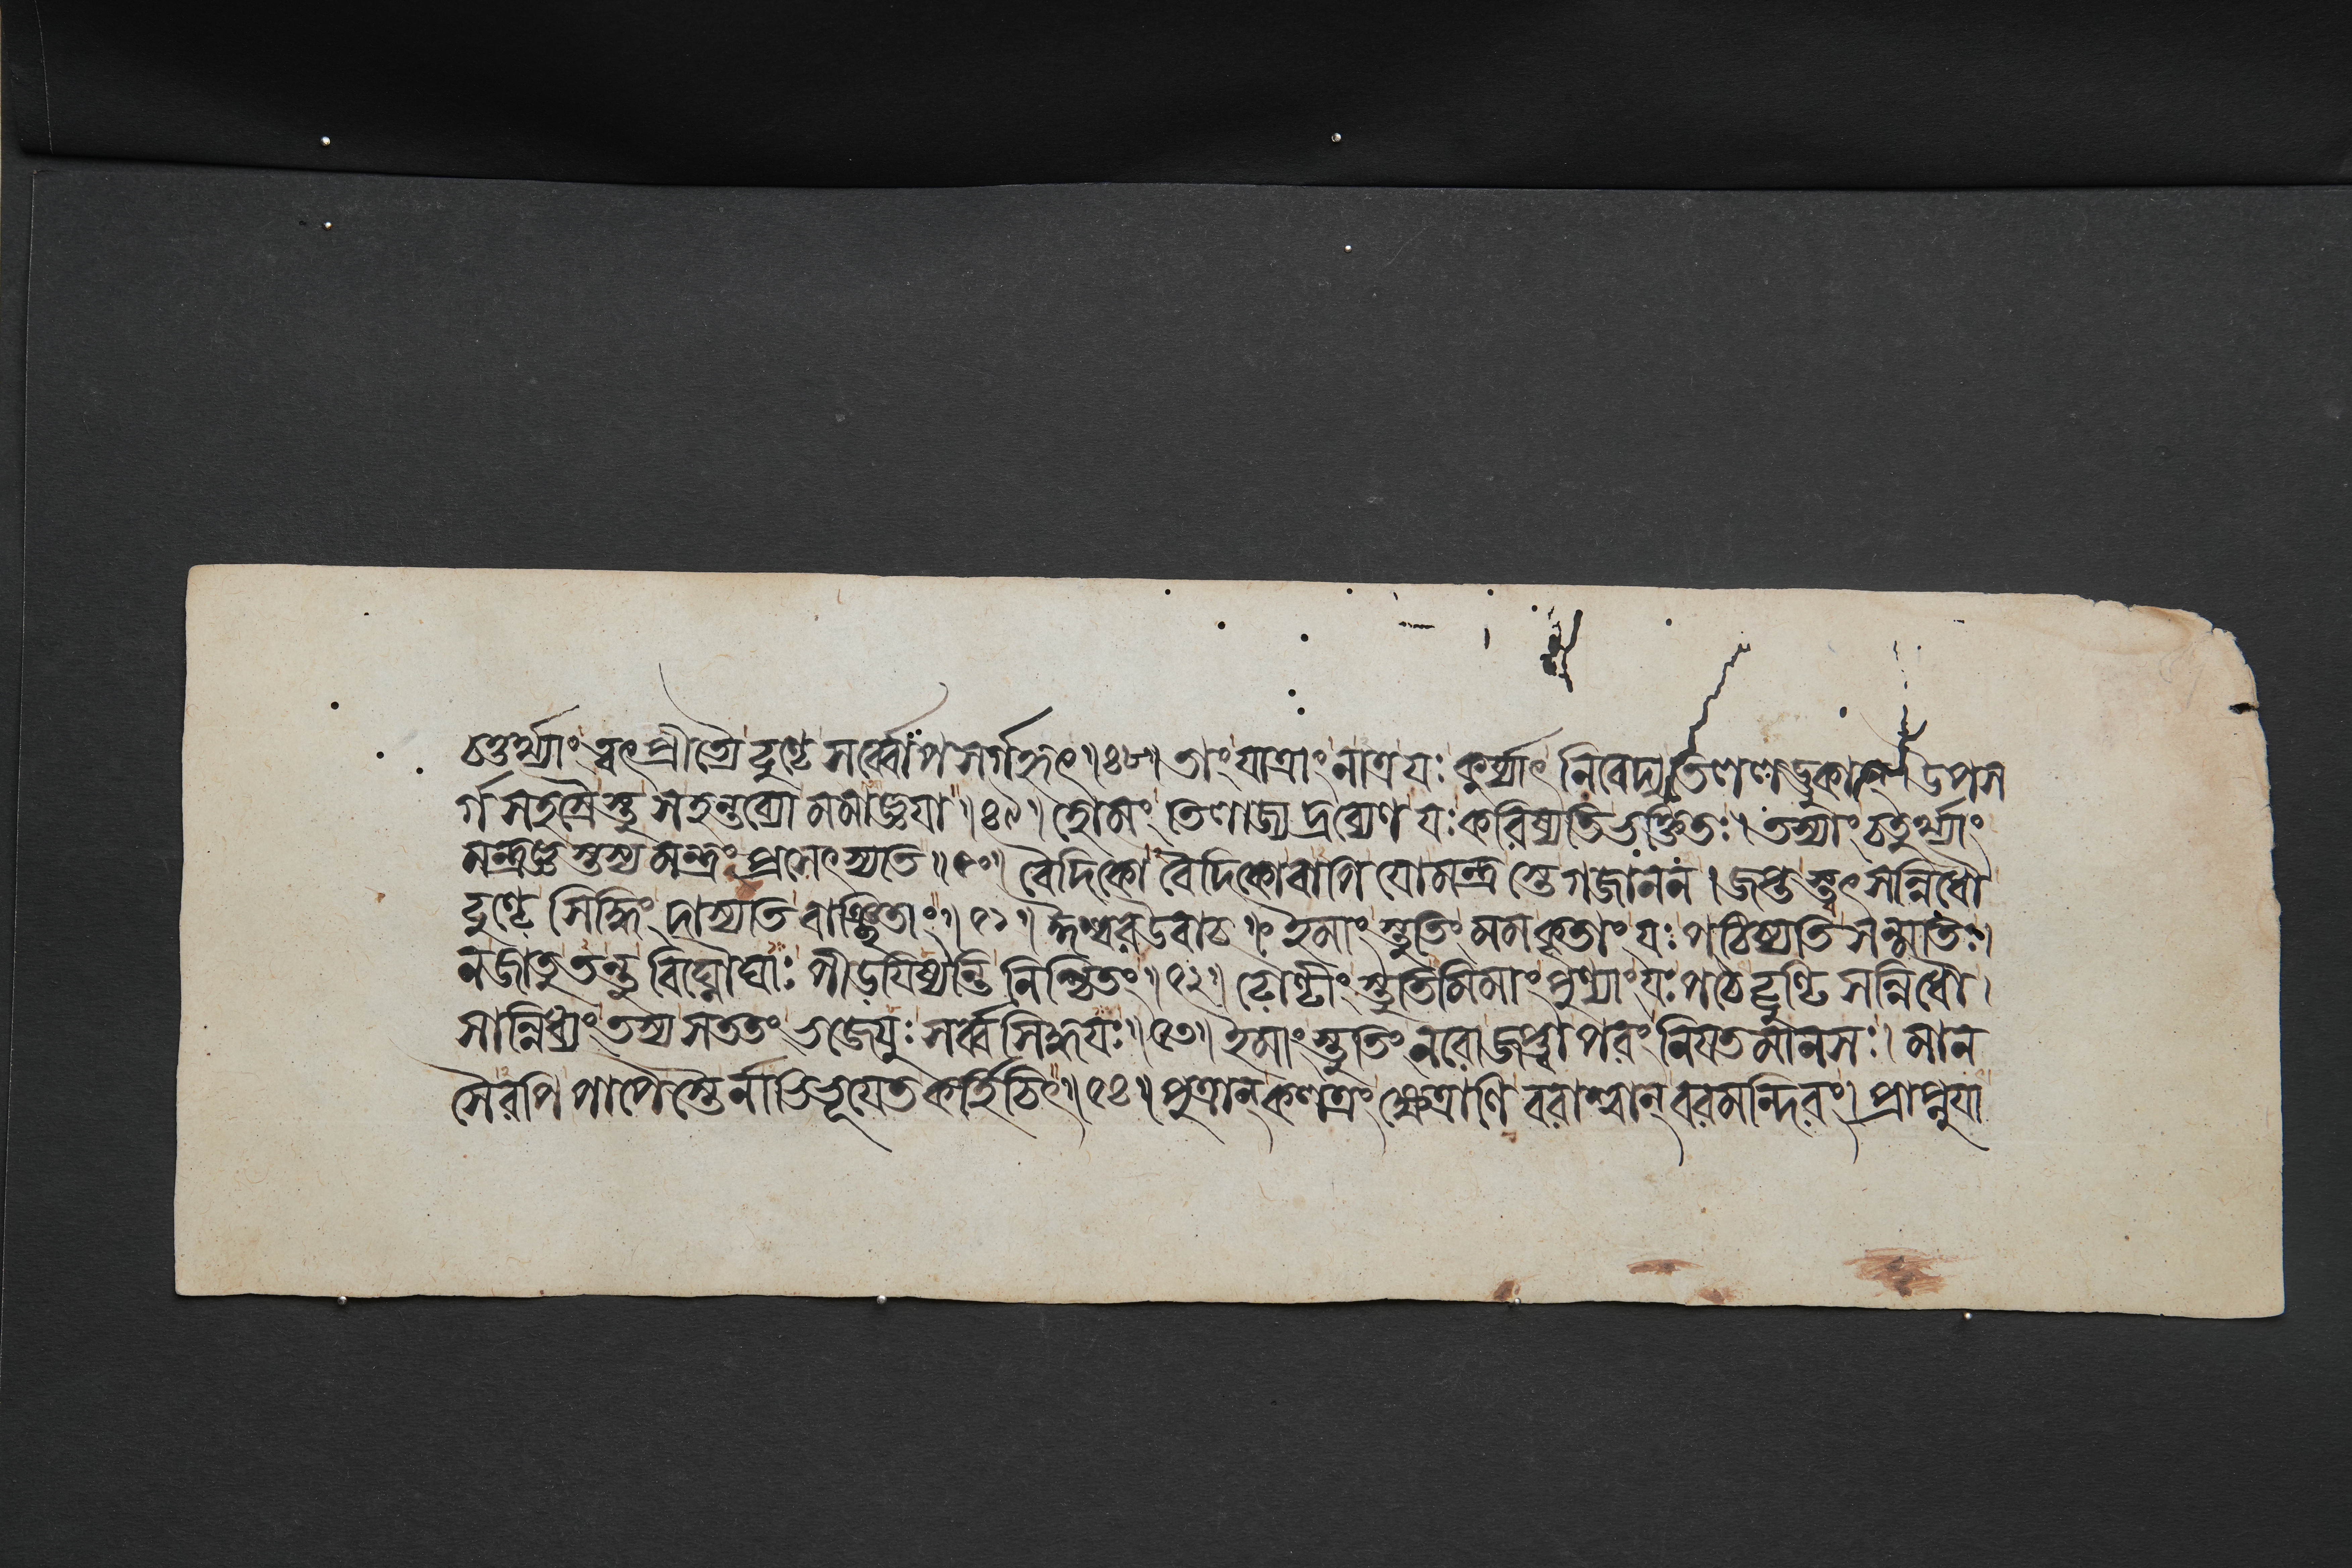 চতুর্থ্যাং ত্বৎপ্রীত্যৈ ঢুণ্ঢে সর্ব্বোপসর্গহৃৎ॥৪৮॥ তাং যাত্রাং নাত্র যঃ কুর্য্যাৎ নিবেদ্য তিললড্ডুকান্। উপস
র্গসহস্রৈস্তু সহন্তব্যো মমাজ্ঞযা॥৪৯॥ হোমং তিলাজ্যদ্রব্যেণ যঃ করিষ্যতি ভক্তিতঃ। তস্যাং চতুর্থ্যাং
মন্ত্রজ্ঞস্তস্য মন্ত্রং প্রসেৎস্যতি॥৫০॥ বৈদিকো বৈদিকোবাপি যো মন্ত্রস্তে গজাননং। জপ্তস্ত্বৎসন্নিধৌ
ঢুণ্ঢে সিদ্ধিং দাস্যতি বাঞ্ছিতাং॥৫১॥ ঈশ্বর উবাচ॥ ইমাং স্তুতিং মম কৃতাং যঃ পঠিষ্যতি সন্মতিঃ।
ন জাতু তন্তু বিঘ্নৌঘাঃ পীডযিষ্যন্তি নিশ্চিতং॥৫২॥ ঢৌণ্ঢীং স্তুতিমিমাং পুণ্যাং যঃ পঠেদ্ঢুণ্ঢি সন্নিধৌ।
সান্নিধ্যং তস্য সততং ভজেযুঃ সর্ব্বসিদ্ধযঃ॥৫৩॥ ইমাং স্তুতিং নরো জপ্ত্বা পরং নিযতমানসঃ। মান
সৈরপি পাপৈস্তৈর্নাভিভূযেত কর্হিচিৎ॥৫৪॥ পুত্রান্ কলত্রং ক্ষেত্রাণি বরাশ্বান্ বরমন্দিরং। প্রাপ্নুযা